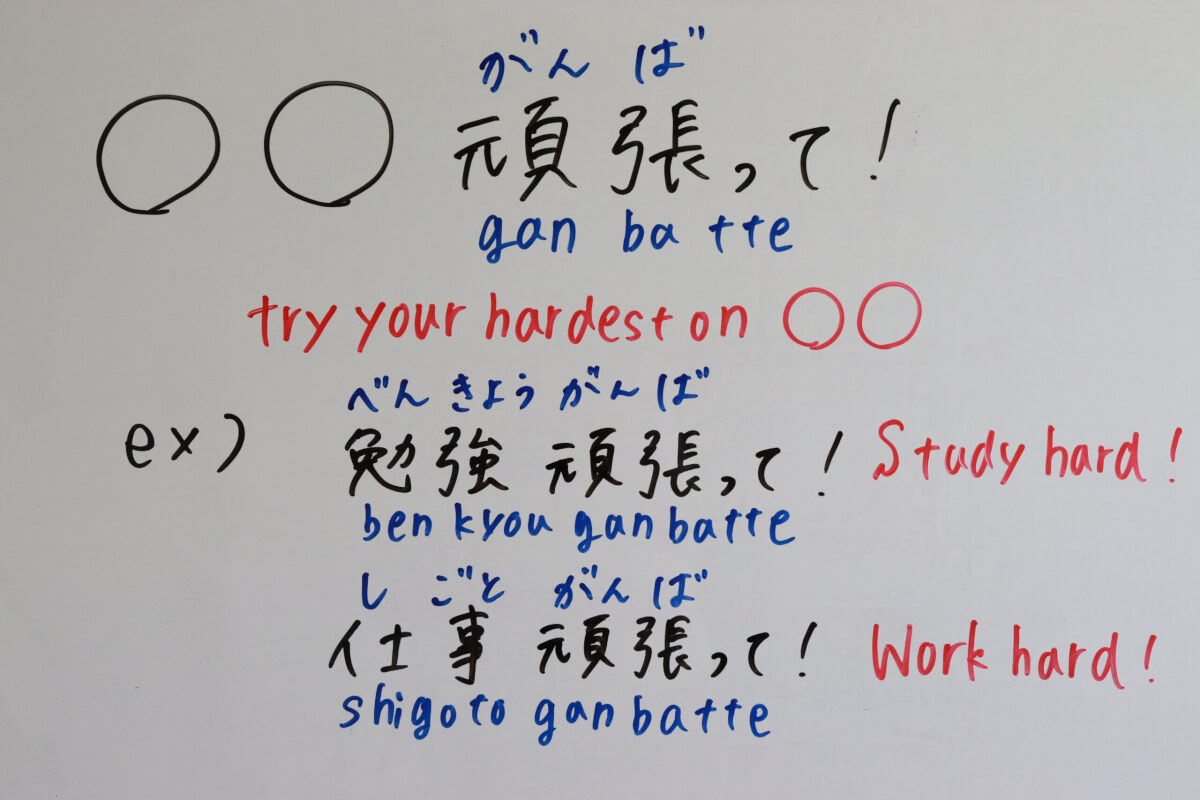 がんば
○○ 頑張って!
gan ba tte
try your hardest on ○○
べんきょう がんば
ex) 勉強 頑張って! Study hard!
ben kyou gan batte
しごと がんば
仕事 頑張って! Work hard!
shigoto gan batte